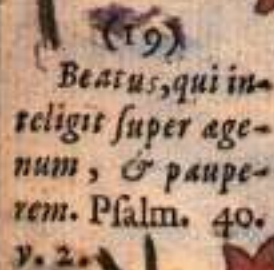 (19)
Beatus, qui in-
teligit ſuper ege-
num, & paupe-
rem. Pſalm. 40.
v. 2.